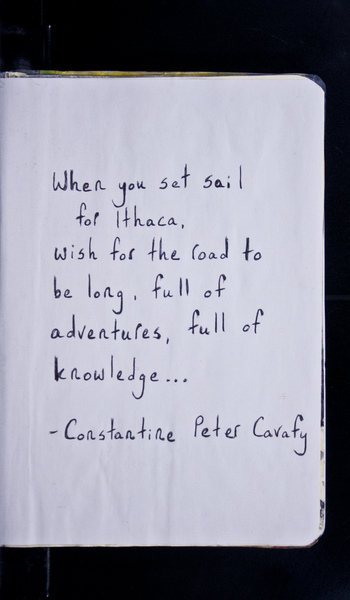 When you set sail
for Ithaca,
wish for the road to
be long, full of
adventures, full of
knowledge...
-Constantine Peter Cavafy